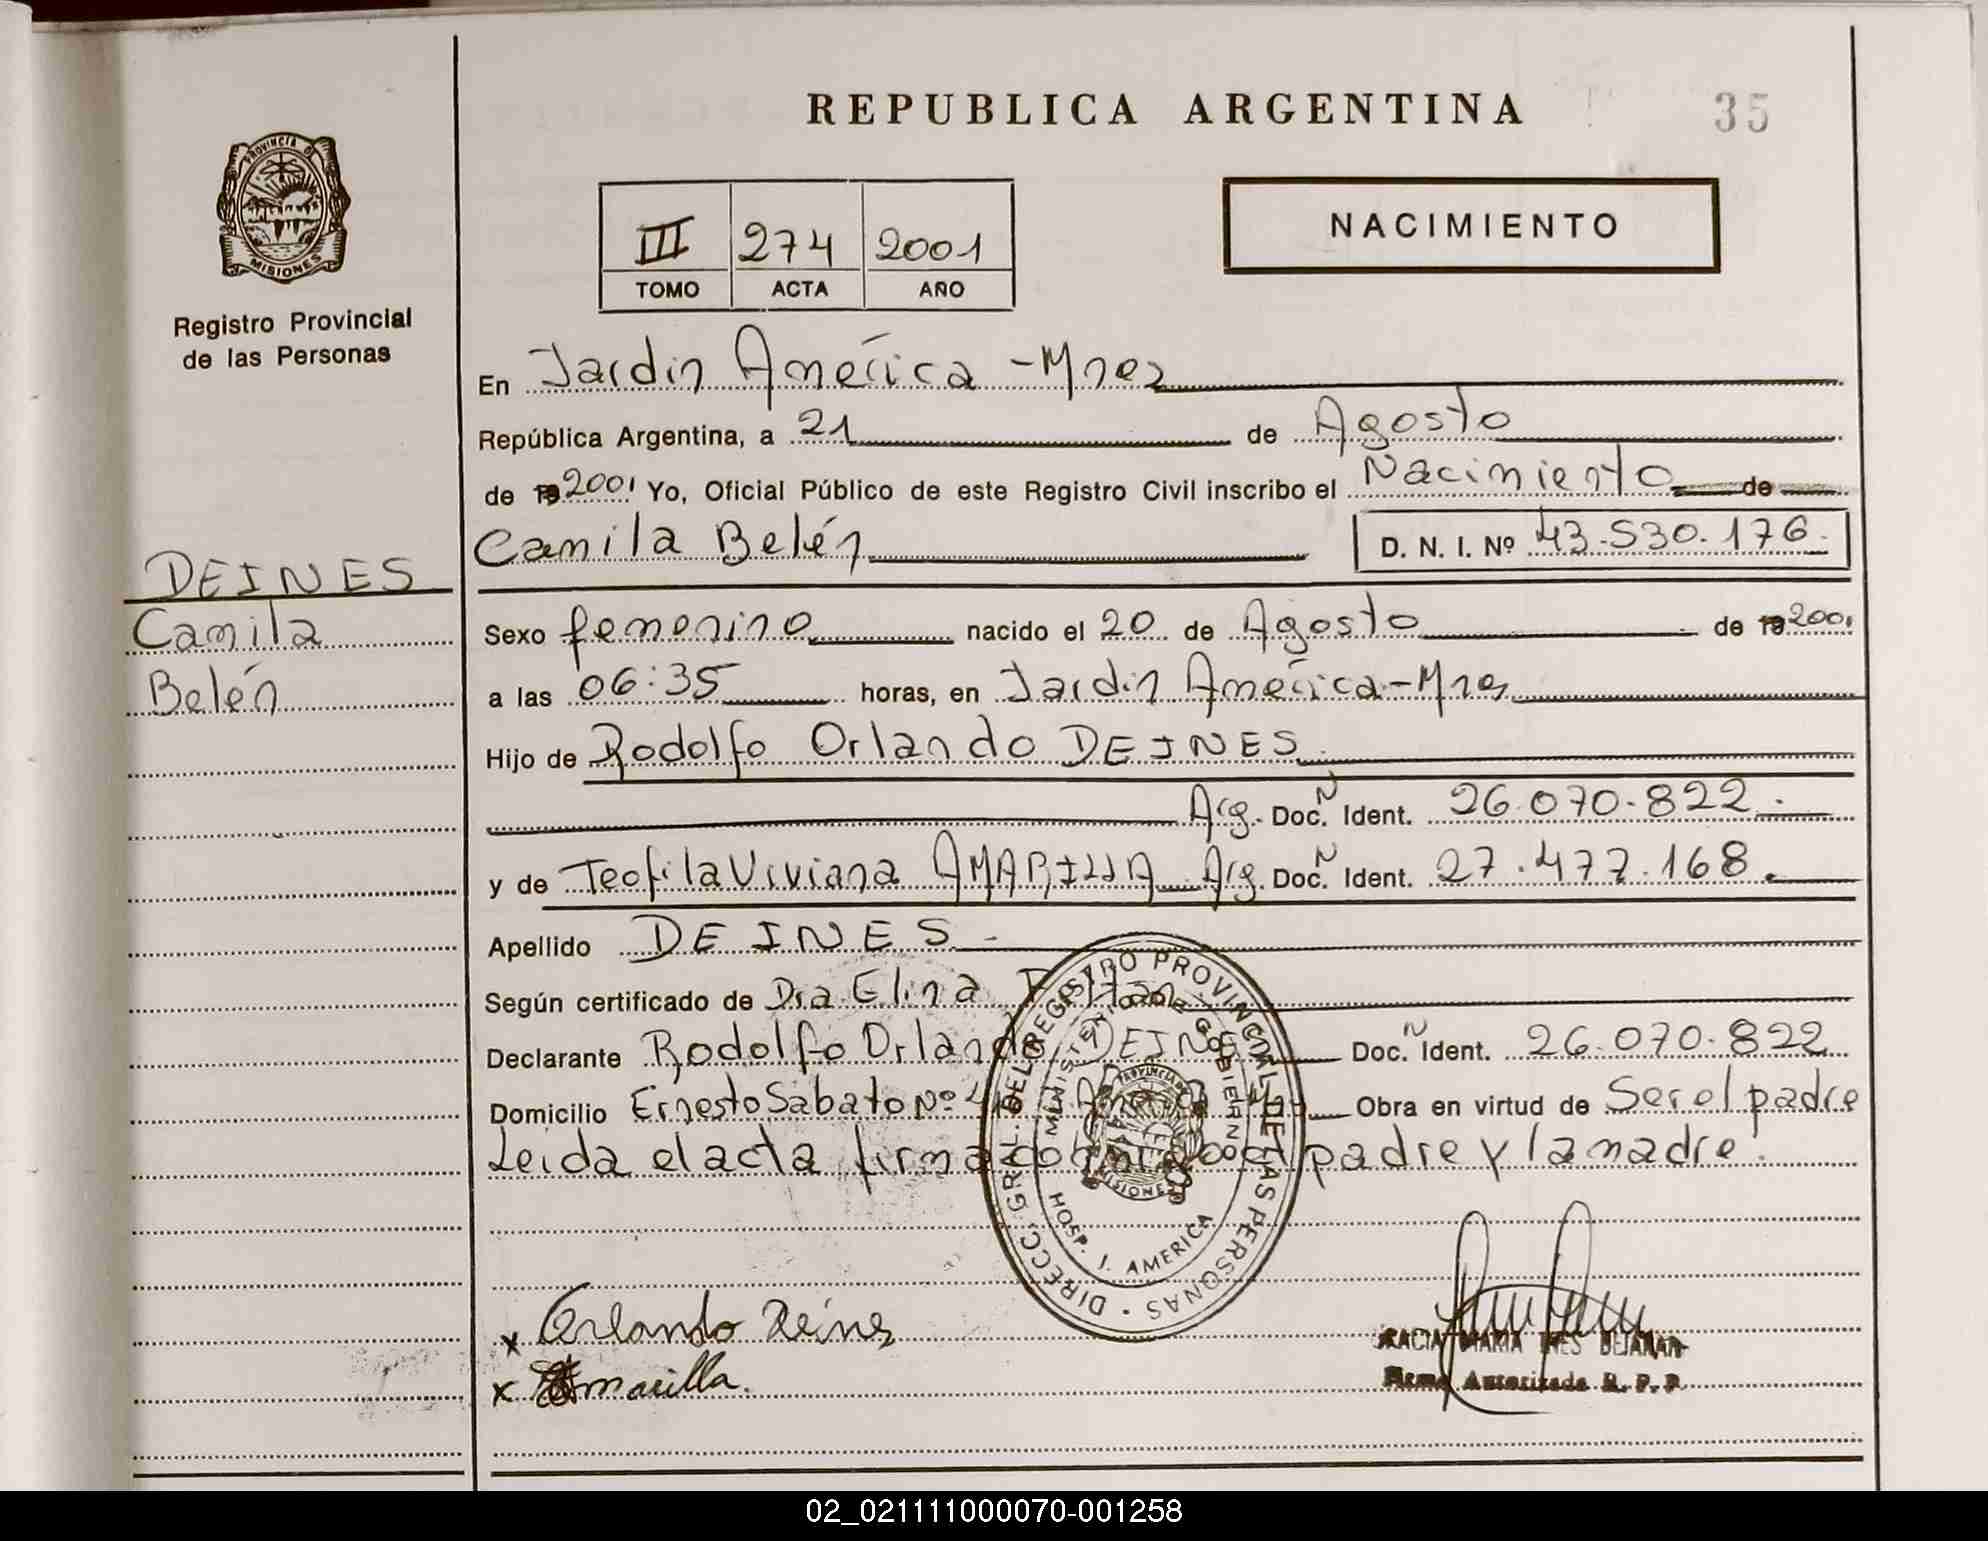 REPUBLICA ARGENTINA
35
PROVINCIA DE
MISIONES
Registro Provincial
de las Personas
III 274 2001
TOMO ACTA AÑO
NACIMIENTO
En Jardin América - Mnes
República Argentina, a 21 de Agosto
de 19 2001 Yo, Oficial Público de este Registro Civil inscribo el Nacimiento de
Camila Belén D. N. I. Nº 43.530.176.
DEINES
Camila
Belén
Sexo femenino nacido el 20 de Agosto de 19 2001
a las 06:35 horas, en Jardin América - Mnes
Hijo de Rodolfo Orlando DEINES
Arg. Doc. N Ident. 26.070.822.
y de Teofila Viviana AMARILLA Arg. Doc. N Ident. 27.477.168.
Apellido DEINES.-
Según certificado de Dra. Elina
Declarante Rodolfo Orlando DEINES Doc. N Ident. 26.070.822
Domicilio Ernesto Sabato Nº Obra en virtud de Ser el padre
Leida el acta firma padre y la madre.
DIRECC. GRL. DEL REGISTRO PROVINCIAL DE LAS PERSONAS
MINISTERIO DE GOBIERNO
HOSP. J. AMERICA
PROVINCIA DE
MISIONES
x Orlando Deines
x Amarilla.
MARIA INES BEJARAN
Firma Autorizada R. P. P.
02_021111000070-001258